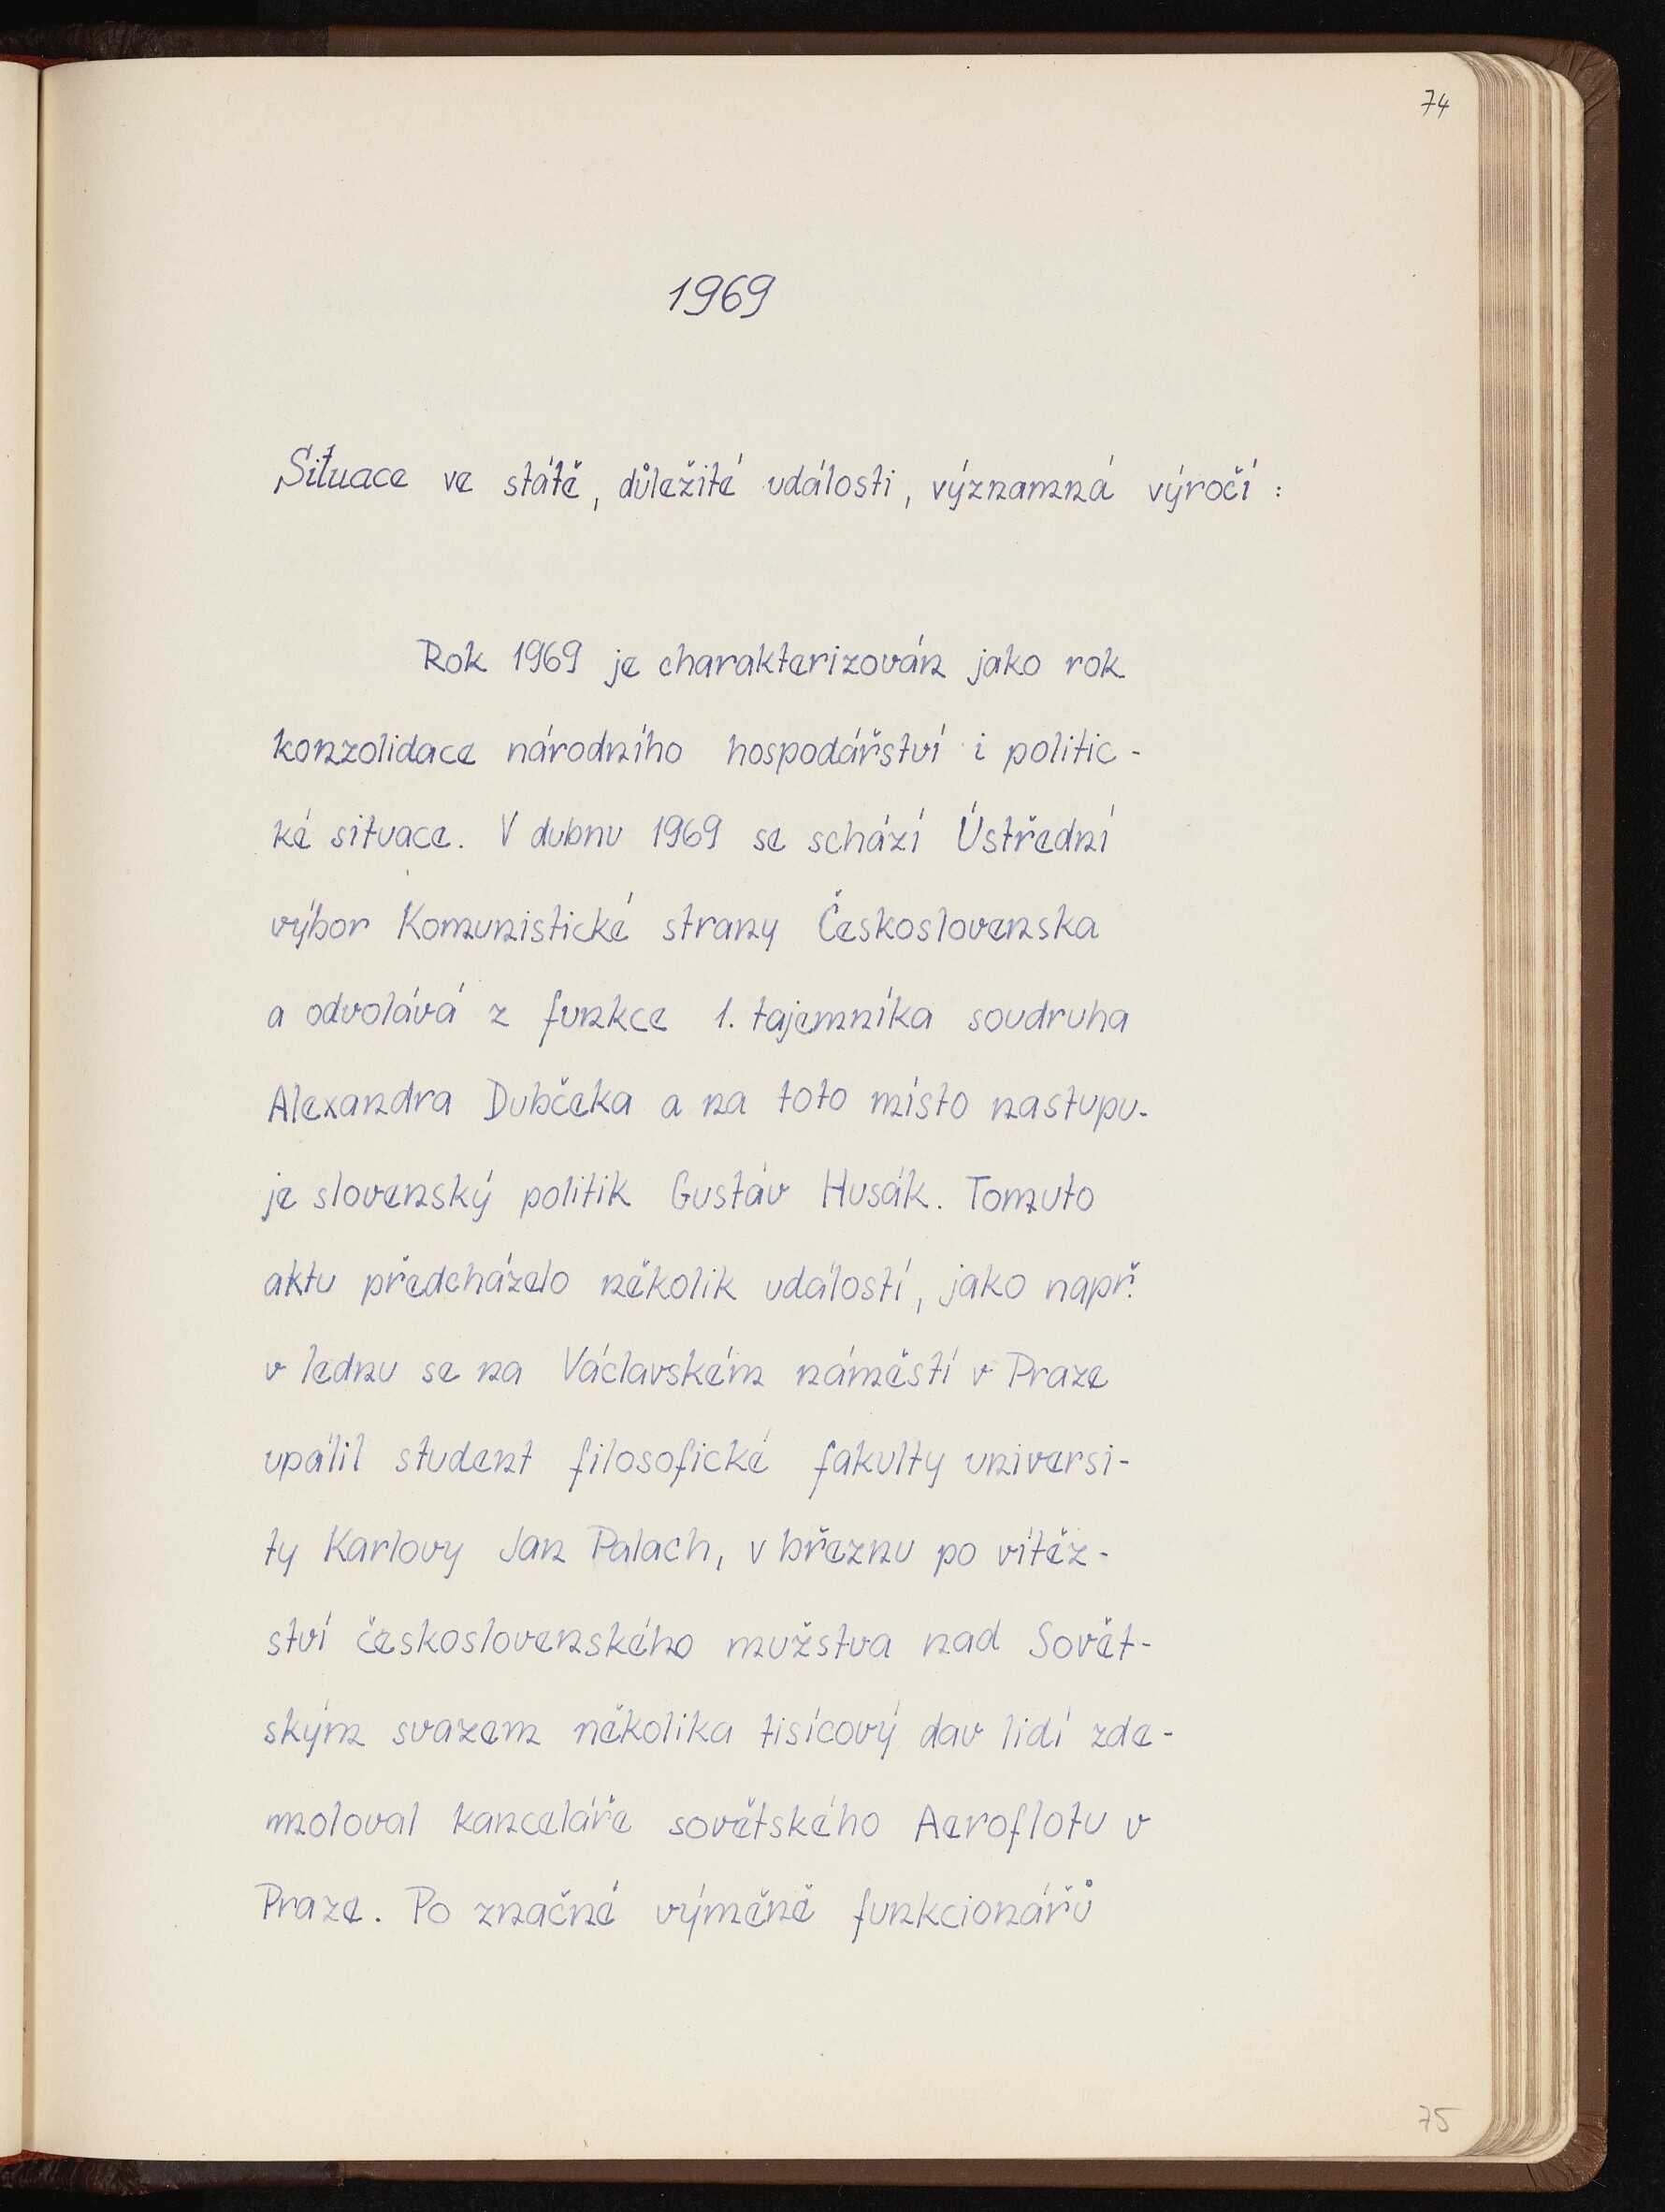 74
1969
Situace ve státě, důležité události, významná výročí :
Rok 1969 je charakterizován jako rok
konzolidace národního hospodářství i politic-
ké situace. V dubnu 1969 se schází Ústřední
výbor Komunistické strany Československa
a odvolává z funkce 1. tajemníka soudruha
Alexandra Dubčeka a na toto místo nastupu-
je slovenský politik Gustáv Husák. Tomuto
aktu předcházelo několik událostí, jako např.
v lednu se na Václavském náměstí v Praze
upálil student filosofické fakulty universi-
ty Karlovy Jan Palach, v březnu po vítěz-
ství československého mužstva nad Sovět-
ským svazem několika tisícový dav lidí zde-
moloval kanceláře sovětského Aeroflotu v
Praze. Po značné výměně funkcionářů
75